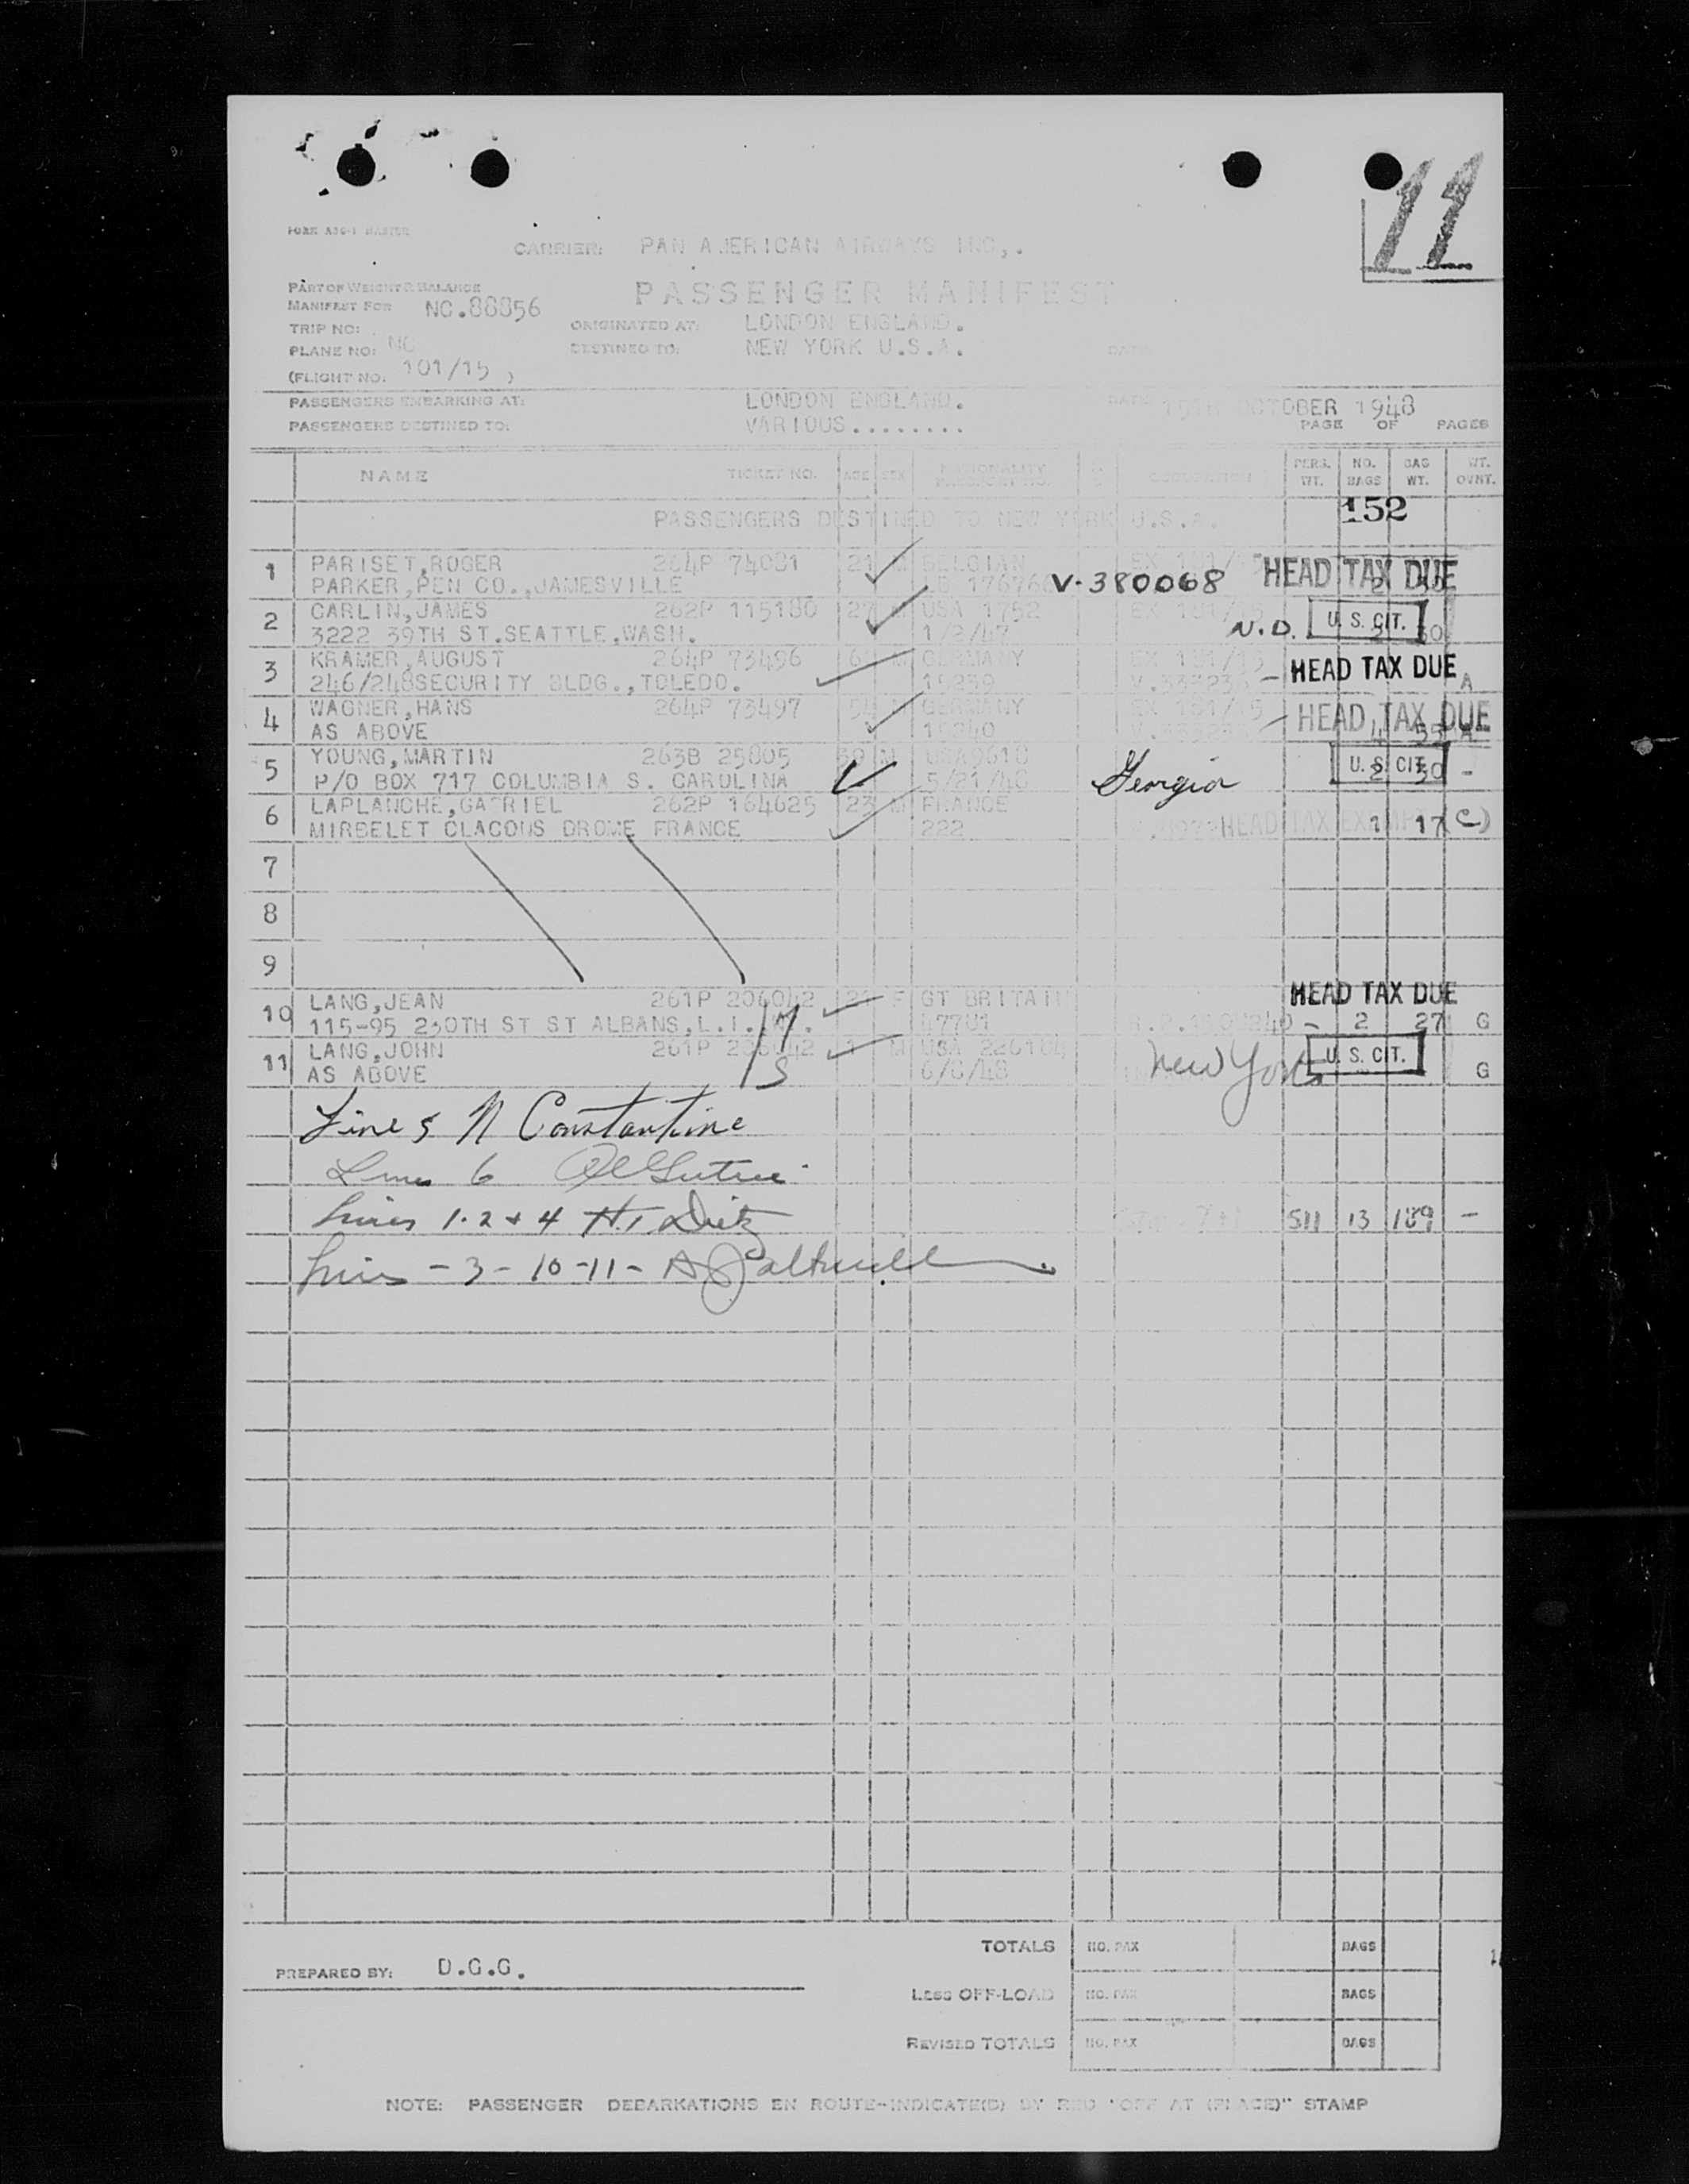 11
CARRIER: PAN AMERICAN AIRWAYS INC,.
PART OF WEIGHT & BALANCE
MANIFEST FOR NC.88856
PASSENGER MANIFEST
TRIP NO:
ORIGINATED AT: LONDON ENGLAND.
PLANE NO: NC
DESTINED TO: NEW YORK U.S.A.
DATE
(FLIGHT NO: 101/15 )
PASSENGERS EMBARKING AT: LONDON ENGLAND.
DATE 15TH OCTOBER 1948
PASSENGERS DESTINED TO: VARIOUS........
PAGE OF PAGES
NAME TICKET NO. AGE SEX NATIONALITY OCCUPATION PERS. WT. NO. BAGS BAG WT. WT. OVNT.
PASSENGERS DESTINED TO NEW YORK U.S.A. 152
1 PARISET,ROGER 264P 74081 21 M BELGIAN EX 101/15 HEAD TAX DUE
PARKER,PEN CO.,JAMESVILLE V-380068
2 CARLIN,JAMES 262P 115180 27 M USA 1752 EX 101/15 U. S. CIT.
3222 39TH ST.SEATTLE,WASH. 1/2/47 N.D.
3 KRAMER,AUGUST 264P 73496 M GERMANY EX 101/15 HEAD TAX DUE
246/248SECURITY BLDG.,TOLEDO. 15239 A
4 WAGNER,HANS 264P 73497 M GERMANY EX 101/15 HEAD TAX DUE
AS ABOVE 15240
5 YOUNG,MARTIN 263B 25805 M U. S. CIT.
P/O BOX 717 COLUMBIA S. CAROLINA 5/21/48 Georgia -
6 LAPLANCHE,GABRIEL 262P 164625 23 M FRANCE
MIRBELET CLACOUS DROME FRANCE 222 HEAD TAX EXEMPT 1 17 (C)
7
8
9
10 LANG,JEAN 261P 206042 F GT BRITAIN HEAD TAX DUE
115-95 230TH ST ST ALBANS,L.I. 47701 2 27 G
11 LANG,JOHN 261P 206042 1 M USA U. S. CIT.
AS ABOVE 6/8/48 New York G
M
S
Line 5 N Constantine
Line 6
Lines 1.2 + 4 H. Dietz
511 13 189 -
Lines - 3 - 10 - 11 -
TOTALS NO. PAX BAGS
PREPARED BY: D.G.G.
LESS OFF-LOAD NO. PAX BAGS
REVISED TOTALS NO. PAX BAGS
NOTE: PASSENGER DEBARKATIONS EN ROUTE-INDICATE(D) BY RED "OFF AT (PLACE)" STAMP